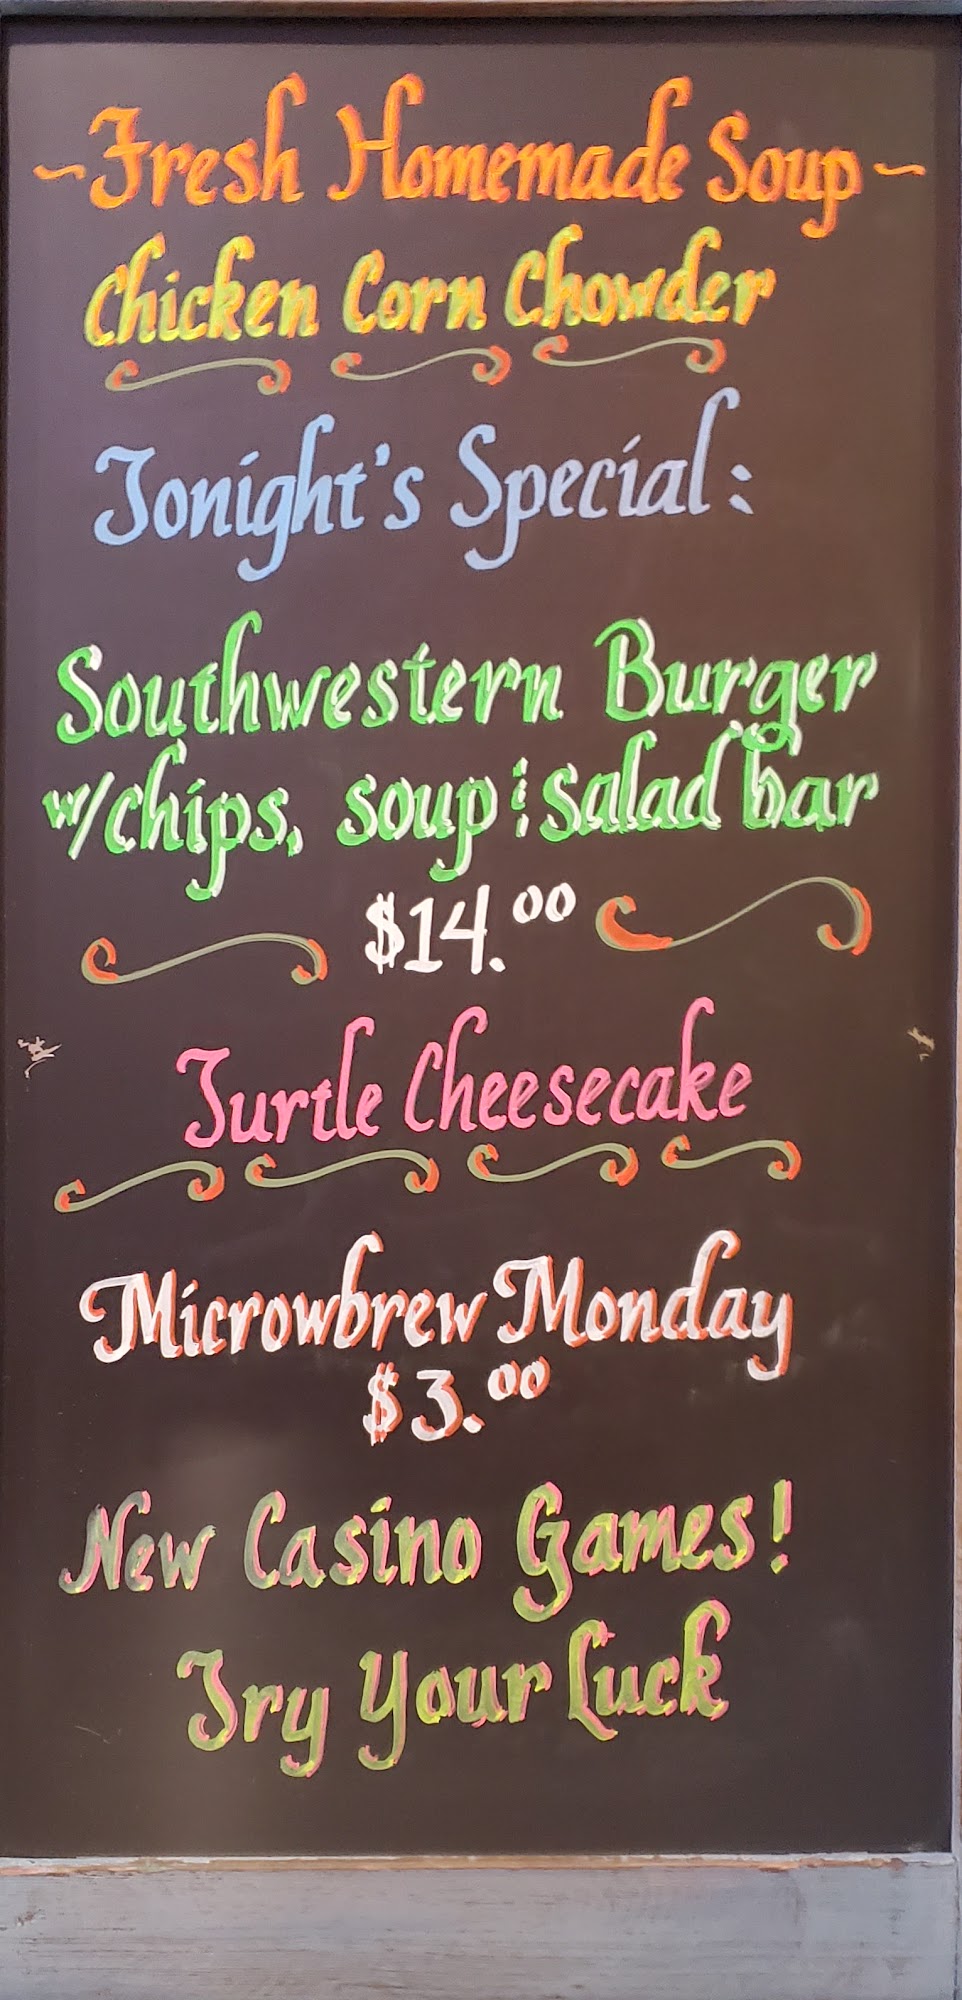 ~Fresh Homemade Soup~
Chicken Corn Chowder
Tonight's Special:
Southwestern Burger
w/chips, soup & salad bar
$14.00
Turtle Cheesecake
Microwbrew Monday
$3.00
New Casino Games!
Try Your Luck